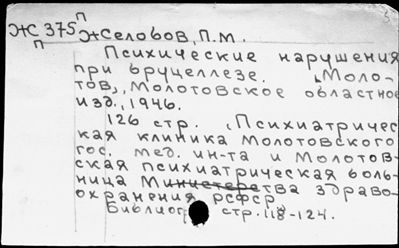 ЖС 375 П Желовов, П.М.
П
Психические нарушения
при бруцеллезе. „Моло-
тов„, Молотовское областное
изд., 1946.
126 стр. „Психиатричес
кая клиника Молотовского
гос. мед. ин-та и Молотов-
ская психиатрическая боль-
ница Министерства здраво-
охранения РСФСР
Библиог стр. 118-124.